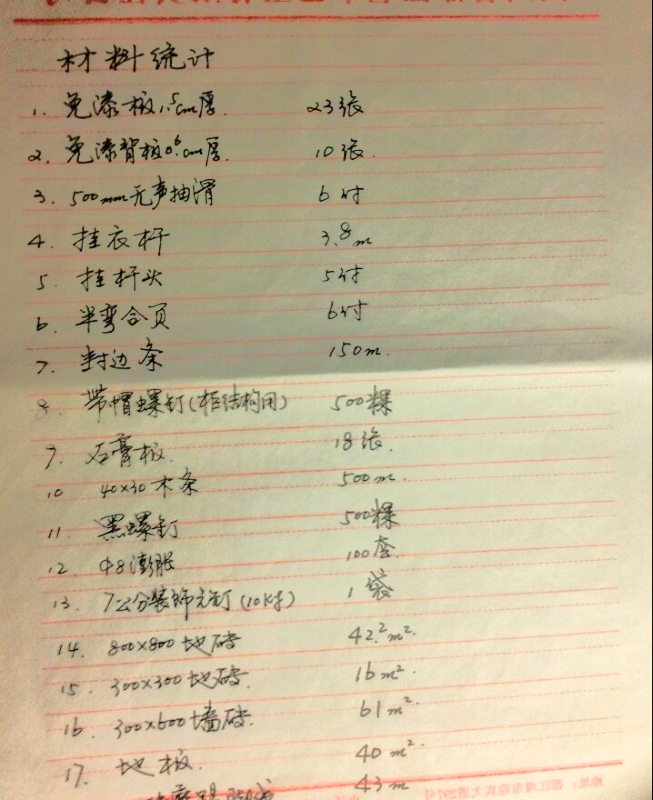 材料统计
1. 免漆板1.5cm厚. 23张
2. 免漆背板0.6cm厚. 10张.
3. 500mm无声抽滑 6付
4. 挂衣杆 3.8m
5. 挂杆头 5付
6. 半弯合页 6付
7. 封边条 150m.
8. 带帽螺钉(柜结构用) 500粿
9. 石膏板. 18张.
10 40×30木条 500m.
11. 黑螺钉 500粿
12. Φ8膨胀 100套.
13. 7公分装饰元钉(10K) 1袋
14. 800×800地砖 42.2m².
15. 300×300地砖 16m².
16. 300×600墙砖. 61m².
17. 地板. 40m².
43m